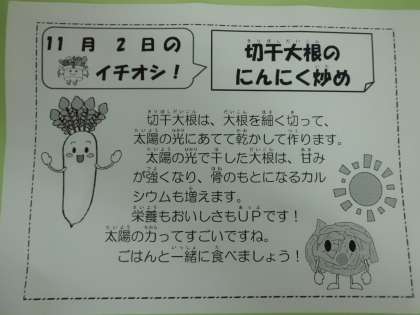 11月2日の
イチオシ！
切干大根の
にんにく炒め
切干大根は、大根を細く切って、
太陽の光にあてて乾かして作ります。
太陽の光で干した大根は、甘み
が強くなり、骨のもとになるカル
シウムも増えます。
栄養もおいしさもＵＰです！
太陽の力ってすごいですね。
ごはんと一緒に食べましょう！